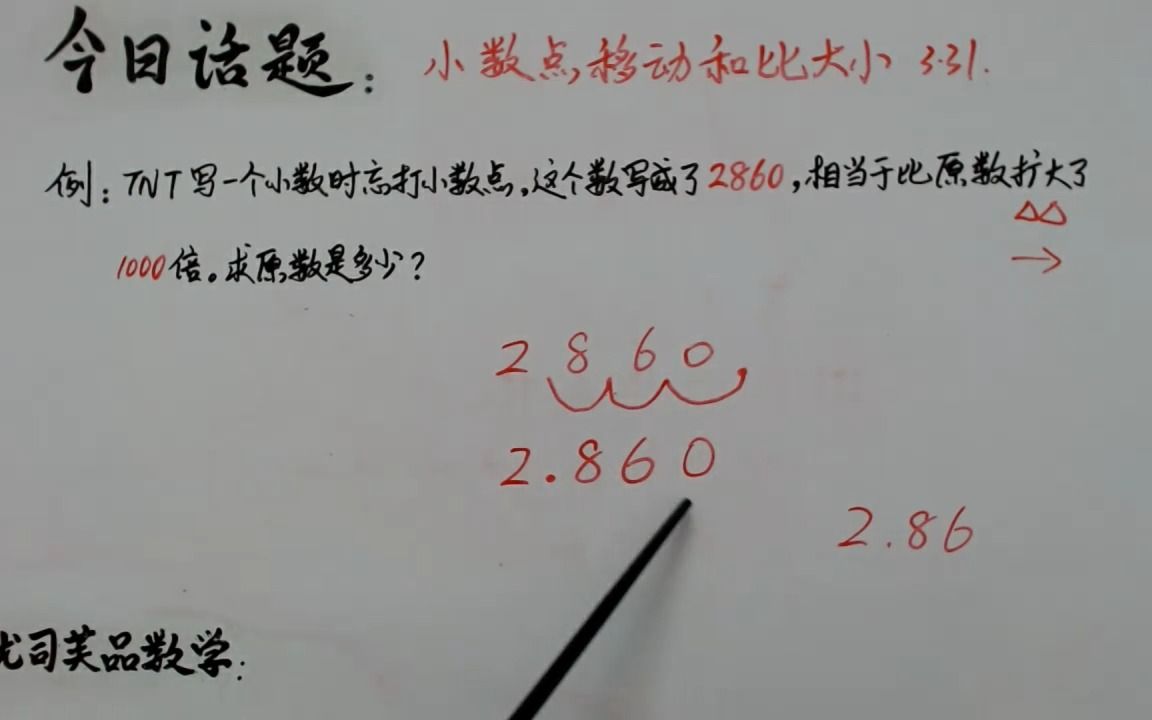 今日话题：小数点移动和比大小 3.31.
例：TNT写一个小数时忘打小数点，这个数写成了2860，相当于比原数扩大了
△△
1000倍。求原数是多少？
→
2 8 6 0
2.860
2.86
司芙品数学：